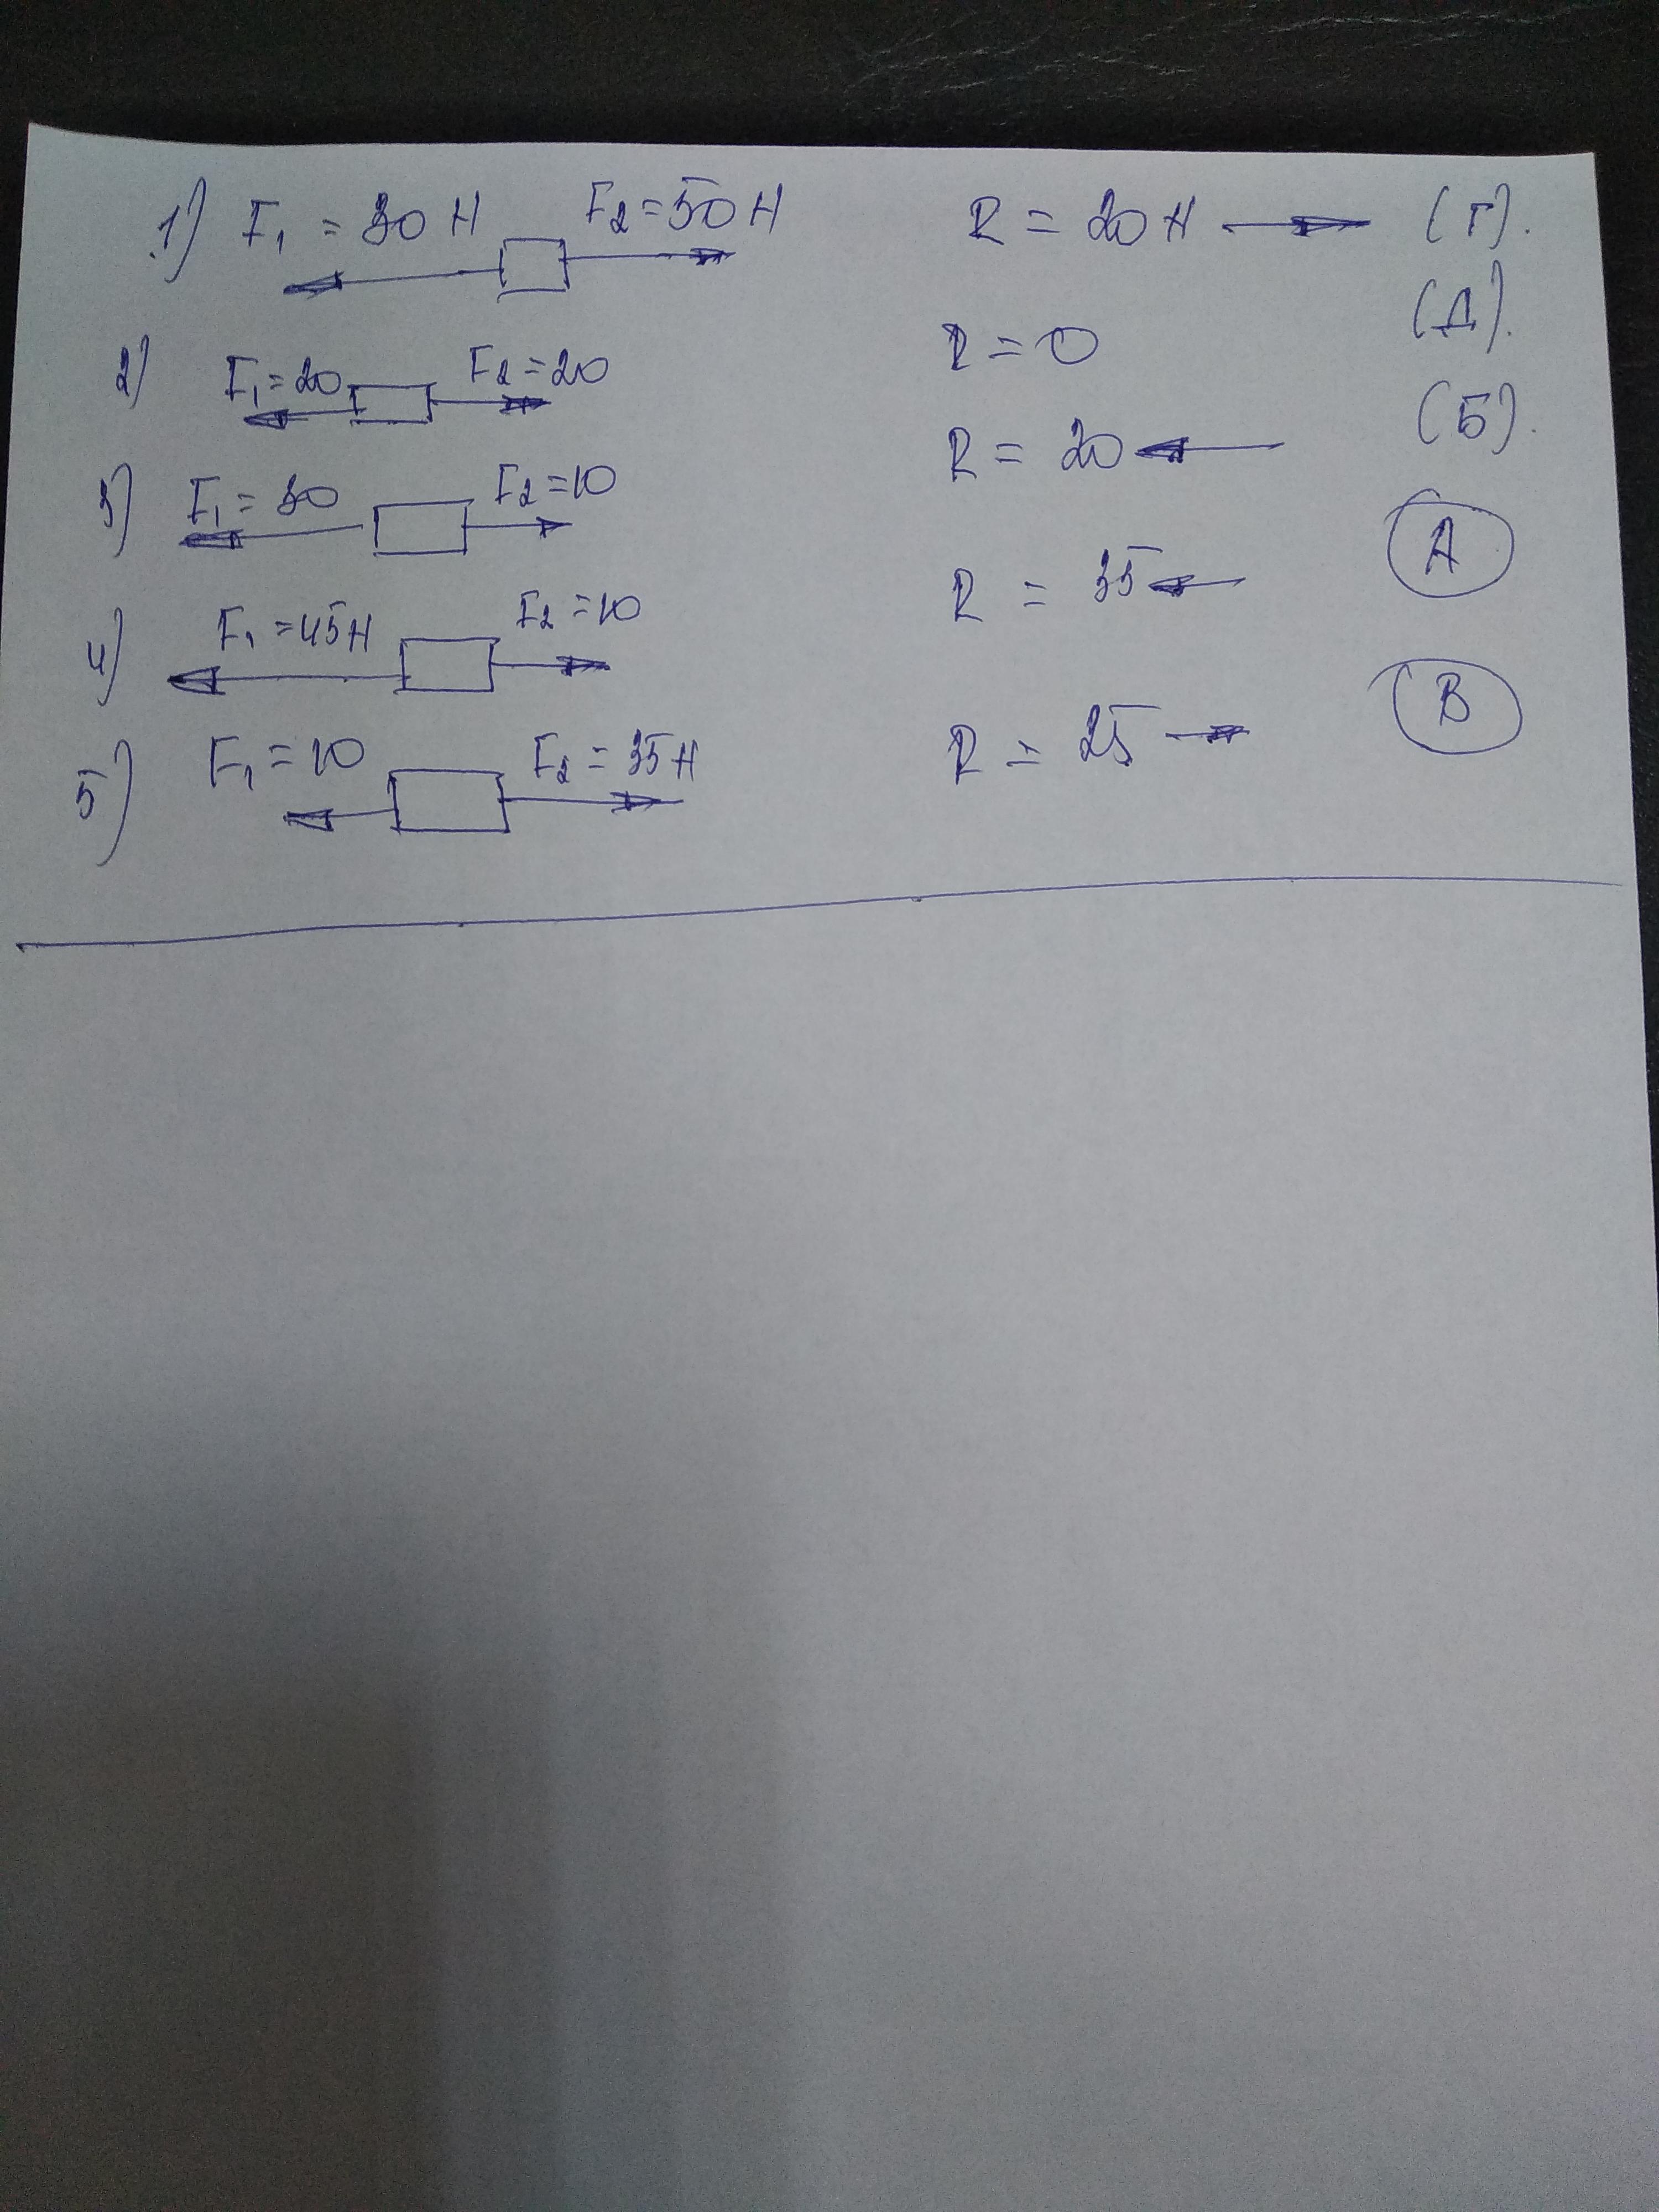 1) F₁ = 30 Н F₂ = 50 Н R = 20 Н (Г).
2) F₁ = 20 F₂ = 20 R = 0 (Д).
3) F₁ = 30 F₂ = 10 R = 20 (Б).
4) F₁ = 45 Н F₂ = 10 R = 35 А
5) F₁ = 10 F₂ = 35 Н R = 25 В